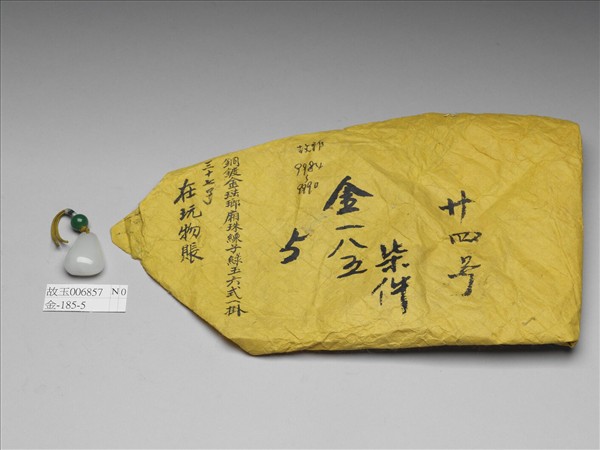 廿四号
柒件
金一八五
5
9984
9990
銅鍍金琺瑯廂珠練子綠玉六式一掛
三十七号
在玩物賬
故玉006857 N0
金-185-5